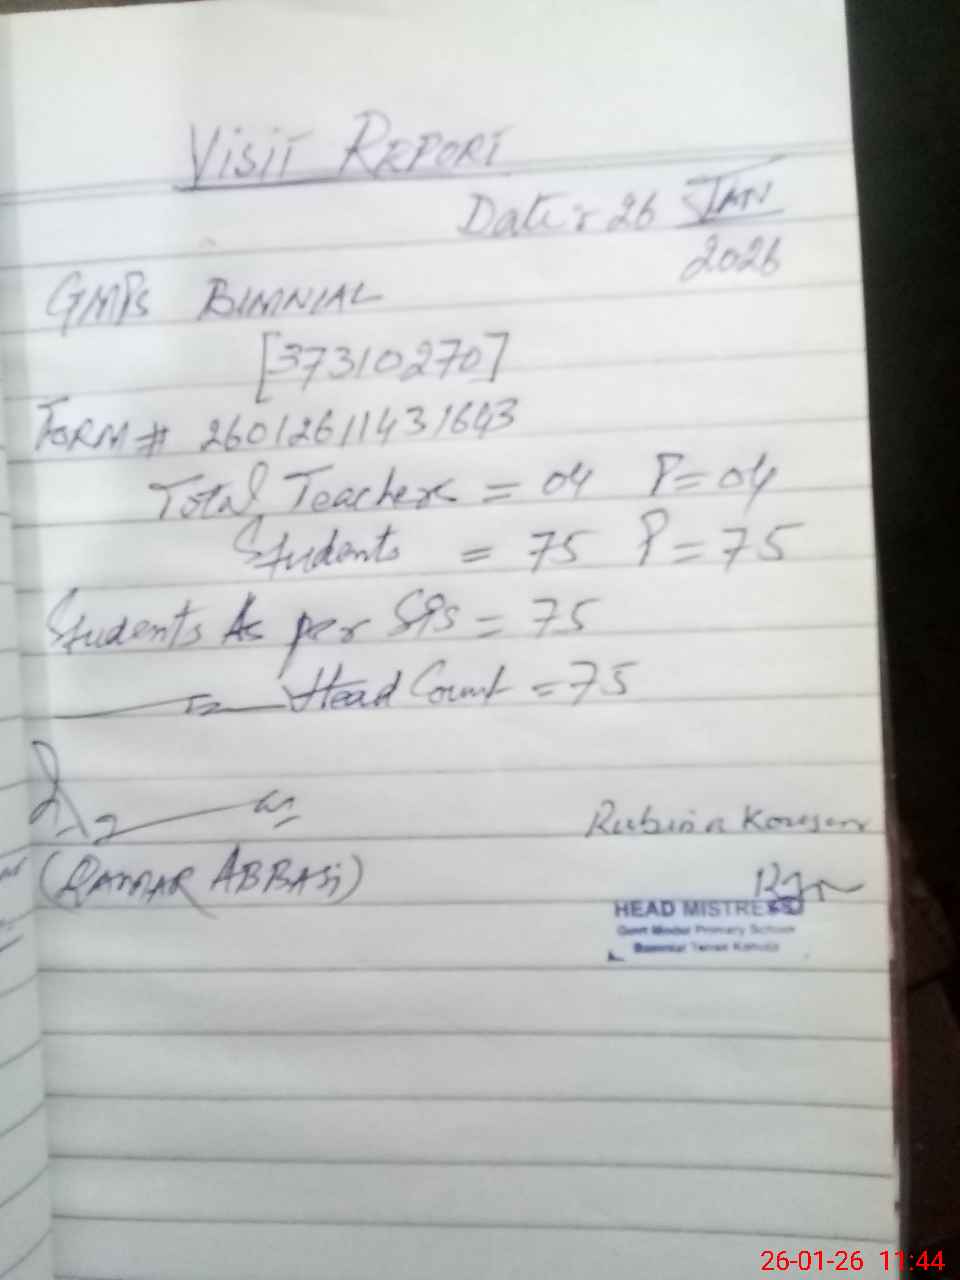 VISIT REPORT
Date: 26 JAN
2026
GMPS BIMNIAL
[37310270]
FORM # 26012611431643
Total Teachers = 04 P = 04
Students = 75 P = 75
Students As per SIS = 75
Head Count = 75
Rubina Kousar
(QAMAR ABBASI)
HEAD MISTRESS
Govt Model Primary School
Bimnial Tehsil Kahuta
26-01-26 11:44